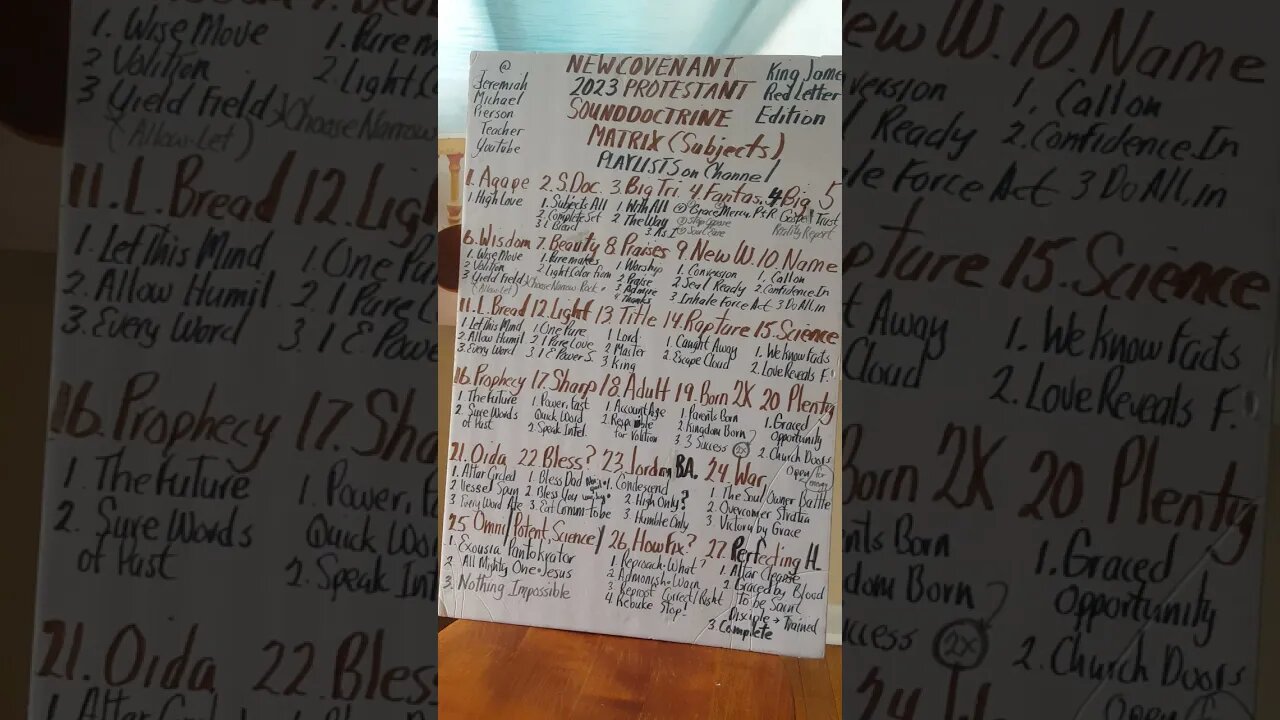 @
Jeremiah
Michael
Pierson
Teacher
YouTube
NEW COVENANT
2023 PROTESTANT
SOUND DOCTRINE
MATRIX (Subjects)
PLAYLISTS on Channel
King Jame
Red Letter
Edition
1. Agape 2. S. Doc. 3 Big Tri 4 Fantas. 4 Big 5
1. High Love
1. Subjects All
2. Complete Set
3. L Bread
1 With All
2 The Way
3. As I
Grace Mercy, P+R
Gospel Trust
Reality Report
6. Wisdom 7. Beauty 8 Praises 9. New W. 10. Name
1. Wise Move
2 Volition
3 Yield Field
(Allow-Let)
1. Pure makes
2 Light Color from
Choose Narrow Rock
1 Worship
2 Praise
3 Admire
4 Thanks
1. Conversion
2. Seal Ready
3 Inhale Force Act
1. Call on
2. Confidence In
3 Do All, in
11. L. Bread 12. Light 13. Title 14. Rapture 15. Science
1. Let This Mind
2. Allow Humil
3. Every Word
1. One Pure
2. 1 Pure Love
3. 1 E Power S.
1 Lord
2 Master
3 King
1. Caught Away
2. Escape Cloud
1. We Know Facts
2. Love Reveals F.
16. Prophecy 17. Sharp 18. Adult 19. Born 2X 20 Plenty
1. The Future
2. Sure Words
of Past
1. Power, Fast
Quick Word
2. Speak Intel.
1. Account Age
2. Responsible
for Volition
1 Parents Born
2 Kingdom Born
3 Success 2X
1. Graced
Opportunity
2. Church Doors
Open
21. Oida 22 Bless? 23. Jordan BA. 24. War
1. Altar Circled
2 Vessel Spun
3 Every Word
1. Bless Dad
2. Bless You
3. Eat Comm-Tobe
1. Condescend
2 High Only?
3 Humble Only
1. The Soul Owner Battle
2. Overcomer Stratia
3. Victory by Grace
25. Omni/Potent, Science/ 26. How Fix? 27. Perfecting H.
1. Exousia Pantokrator
2 All Mighty One • Jesus
3. Nothing Impossible
1. Reproach • What?
2. Admonish • Warn
3. Reproof Correct/Right
4. Rebuke Stop!
1. Altar Cleanse
2. Graced by Blood
To be Saint
Disciple → Trained
3 Complete